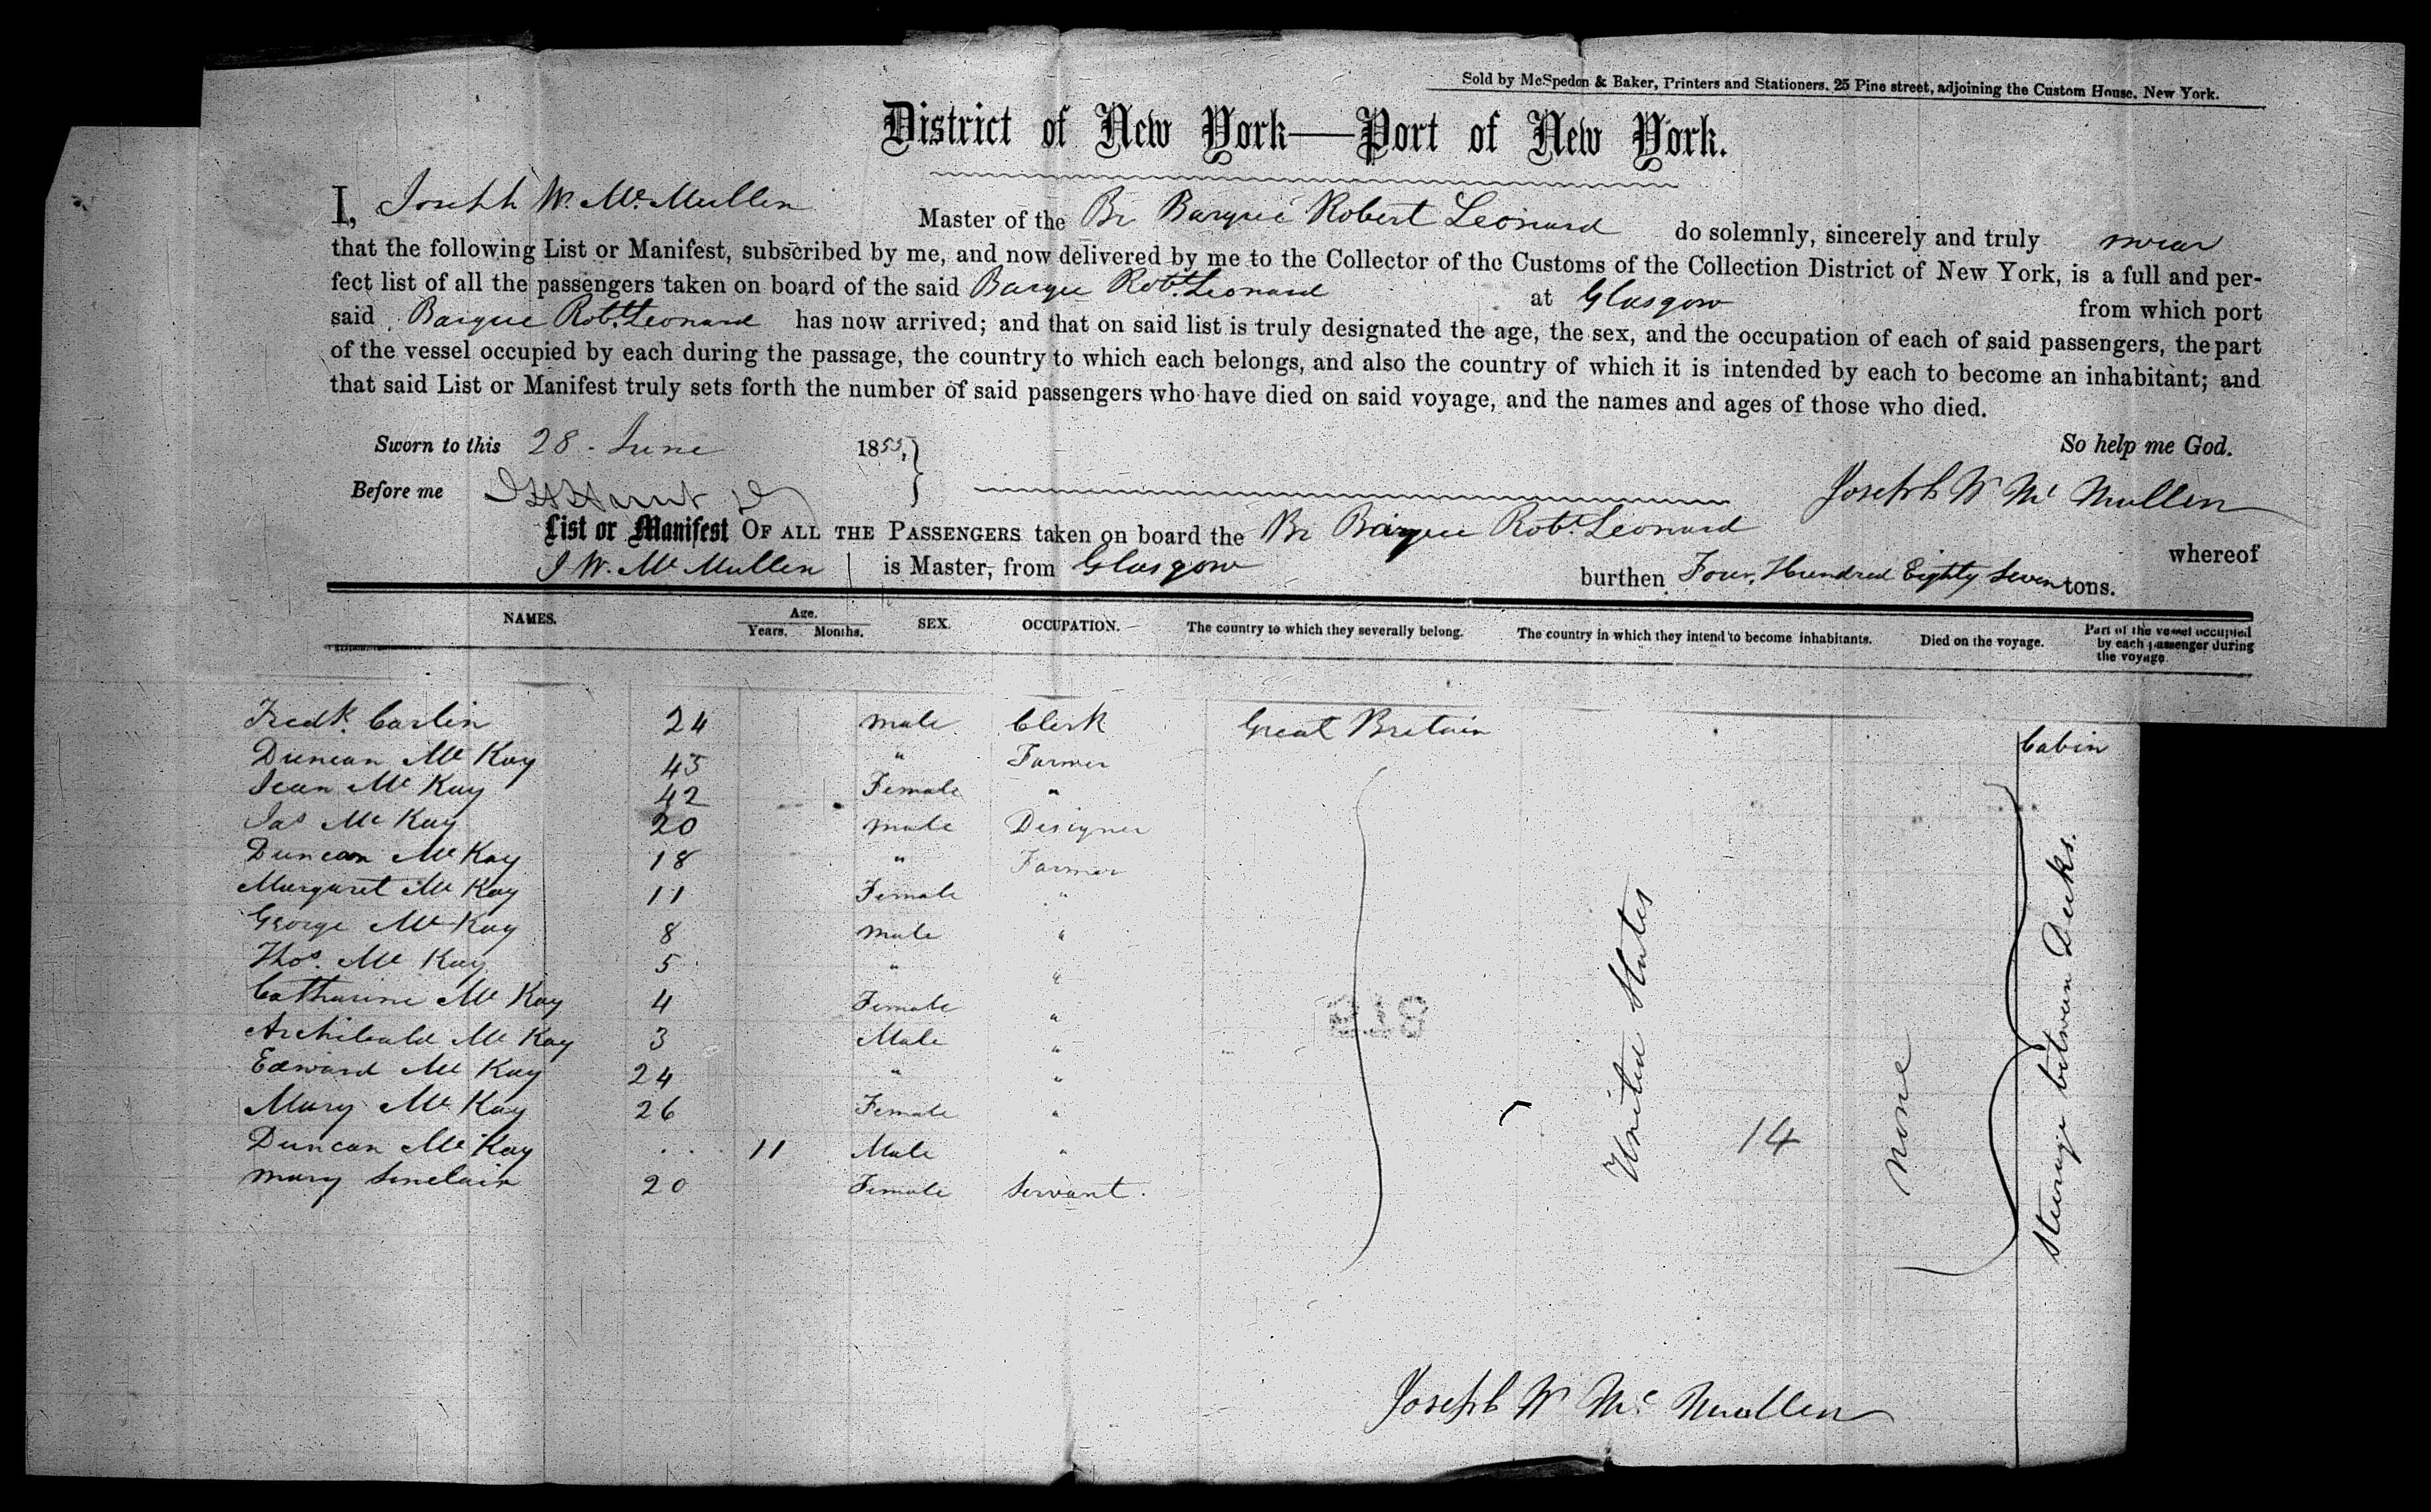 Sold by McSpedon & Baker, Printers and Stationers, 25 Pine street, adjoining the Custom House, New York.
District of New York—Port of New York.
I, Joseph W. Mc. Mullen Master of the Br Barque Robert Leonard do solemnly, sincerely and truly swear
that the following List or Manifest, subscribed by me, and now delivered by me to the Collector of the Customs of the Collection District of New York, is a full and per-
fect list of all the passengers taken on board of the said Barque Robt. Leonard at Glasgow from which port
said Barque Robt. Leonard has now arrived; and that on said list is truly designated the age, the sex, and the occupation of each of said passengers, the part
of the vessel occupied by each during the passage, the country to which each belongs, and also the country of which it is intended by each to become an inhabitant; and
that said List or Manifest truly sets forth the number of said passengers who have died on said voyage, and the names and ages of those who died.
Sworn to this 28 - June 1853, So help me God.
Before me Joseph W Mc Mullen
List or Manifest OF ALL THE PASSENGERS taken on board the Br Barque Robt. Leonard whereof
J W. Mc Mullen is Master, from Glasgow burthen Four Hundred Eighty Seven tons.
NAMES. Age. Years. Months. SEX. OCCUPATION. The country to which they severally belong. The country in which they intend to become inhabitants. Died on the voyage. Part of the vessel occupied by each passenger during the voyage.
Fredk. Carlin 24 male Clerk Great Britain Cabin
Duncan Mc Kay 45 " Farmer
Jean Mc Kay 42 Female "
Jas Mc Kay 20 male Designer
Duncan Mc Kay 18 " Farmer
Margaret Mc Kay 11 Female "
George Mc Kay 8 male "
Thos. Mc Kay 5 " "
Catharine Mc Kay 4 Female "
Archibald Mc Kay 3 Male "
Edward Mc Kay 24 " "
Mary Mc Kay 26 Female "
Duncan Mc Kay . . 11 Male "
Mary Sinclair 20 Female Servant.
United States
14
none
Steerage between Decks.
218
Joseph W Mc Mullen